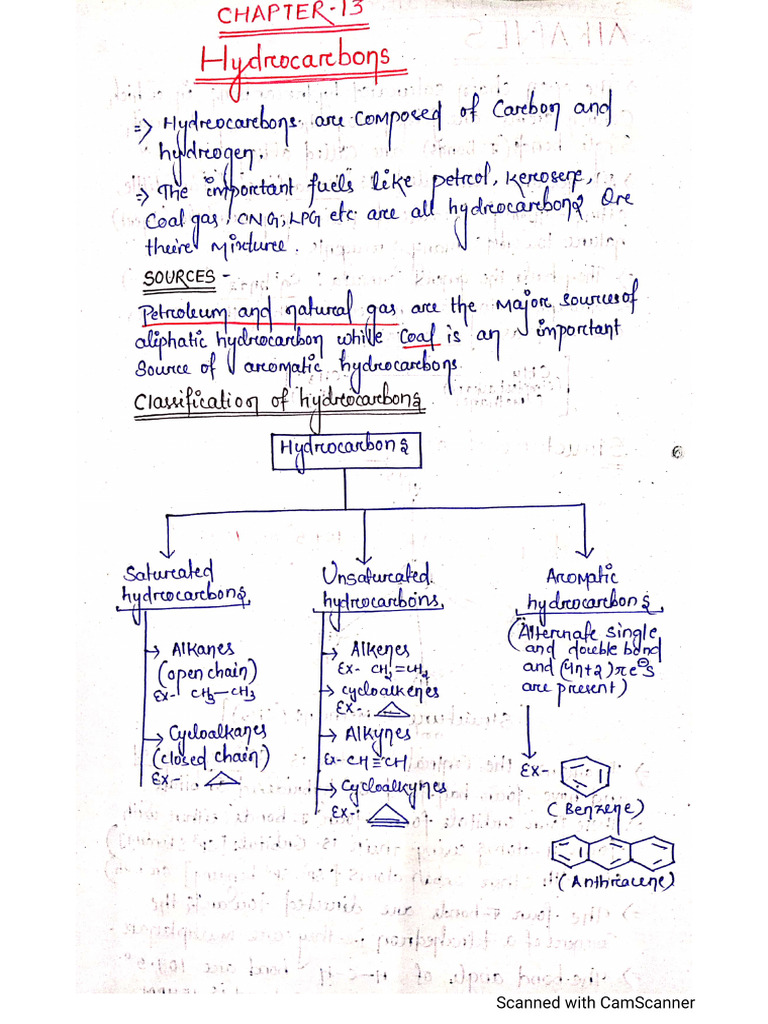 CHAPTER-13
Hydrocarbons
=> Hydrocarbons are composed of Carbon and
hydrogen.
=> The important fuels like petrol, kerosene,
Coal gas, CNG, LPG etc are all hydrocarbons Ore
their Mixture.
SOURCES -
Petroleum and natural gas are the Major sources of
aliphatic hydrocarbon while Coal is an important
Source of aromatic hydrocarbons
Classification of hydrocarbons
Hydrocarbons
Saturated
hydrocarbons
Unsaturated
hydrocarbons,
Aromatic
hydrocarbons
(Alternate single
and double bond
and (4n+2)πe⊖s
are present)
→ Alkanes
(open chain)
Ex- CH3—CH3
→ Cycloalkanes
(closed chain)
Ex-
→ Alkenes
Ex- CH2=CH2
→ cycloalkenes
Ex-
→ Alkynes
Ex- CH≡CH
→ Cycloalkynes
Ex-
Ex-
(Benzene)
(Anthracene)
Scanned with CamScanner